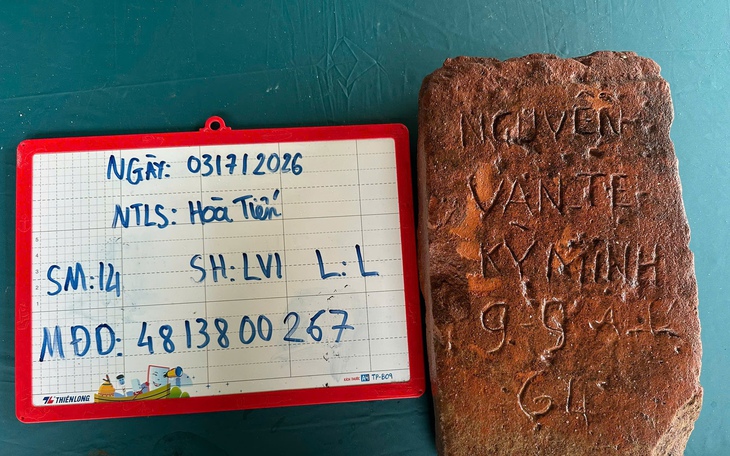 NGÀY: 03/7/2026
NTLS: Hoà Tiến
SM: 14 SH: LVI L: L
MĐD: 4813800267
THIÊN LONG
TP-B09
NGUYỄN
VĂN TẸ
KỲ MINH
9-9 A-L
64